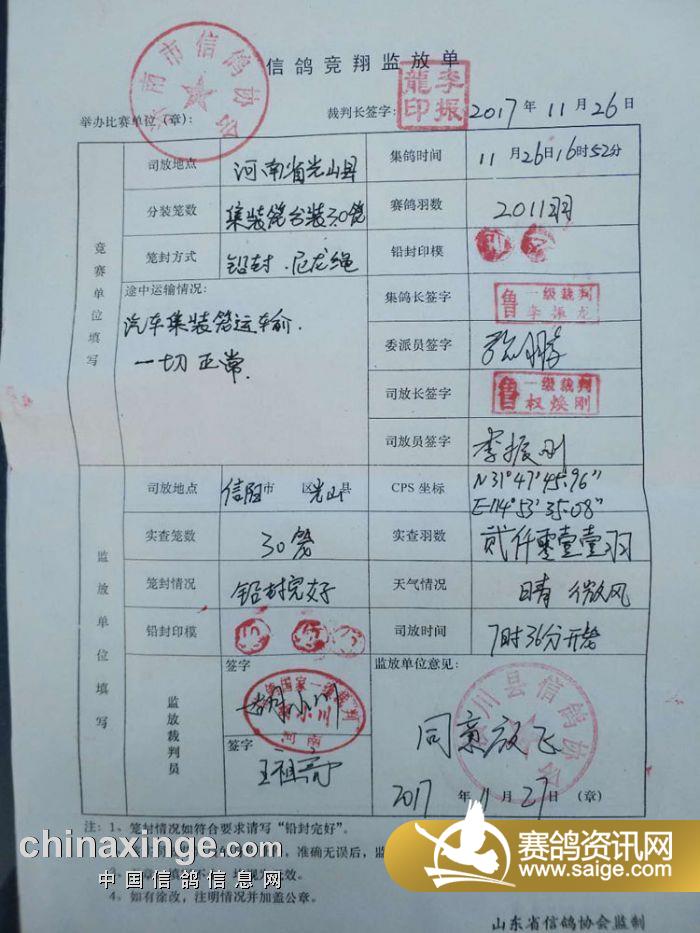 信鸽竞翔监放单
南市信鸽协会
李振龍印
举办比赛单位（章）：
裁判长签字：
2017年11月26日
竞赛单位填写
司放地点 河南省光山县 集鸽时间 11月26日16时52分
分装笼数 集装笼台装30笼 赛鸽羽数 2011羽
笼封方式 铅封.尼龙绳 铅封印模
途中运输情况：
汽车集装笼运输.
一切正常.
集鸽长签字 鲁 一级裁判 李振龙
委派员签字
司放长签字 鲁 一级裁判 权焕刚
司放员签字 李振刚
监放单位填写
司放地点 信阳市 区光山县 CPS 坐标 N31°47'45.96"
E-114°53'35.08"
实查笼数 30笼 实查羽数 贰仟零壹壹羽
笼封情况 铅封完好 天气情况 晴 微风
铅封印模 司放时间 7时36分开笼
监放裁判员
签字
国家一级裁判
河南
签字
监放单位意见：
川县信鸽协会
同意放飞
2017年11月27日（章）
注：1、笼封情况如符合要求请写“铅封完好”。
准确无误后，监
4、如有涂改，注明情况并加盖公章。
山东省信鸽协会监制
chinaxinge.com
中国信鸽信息网
赛鸽资讯网
www.saige.com